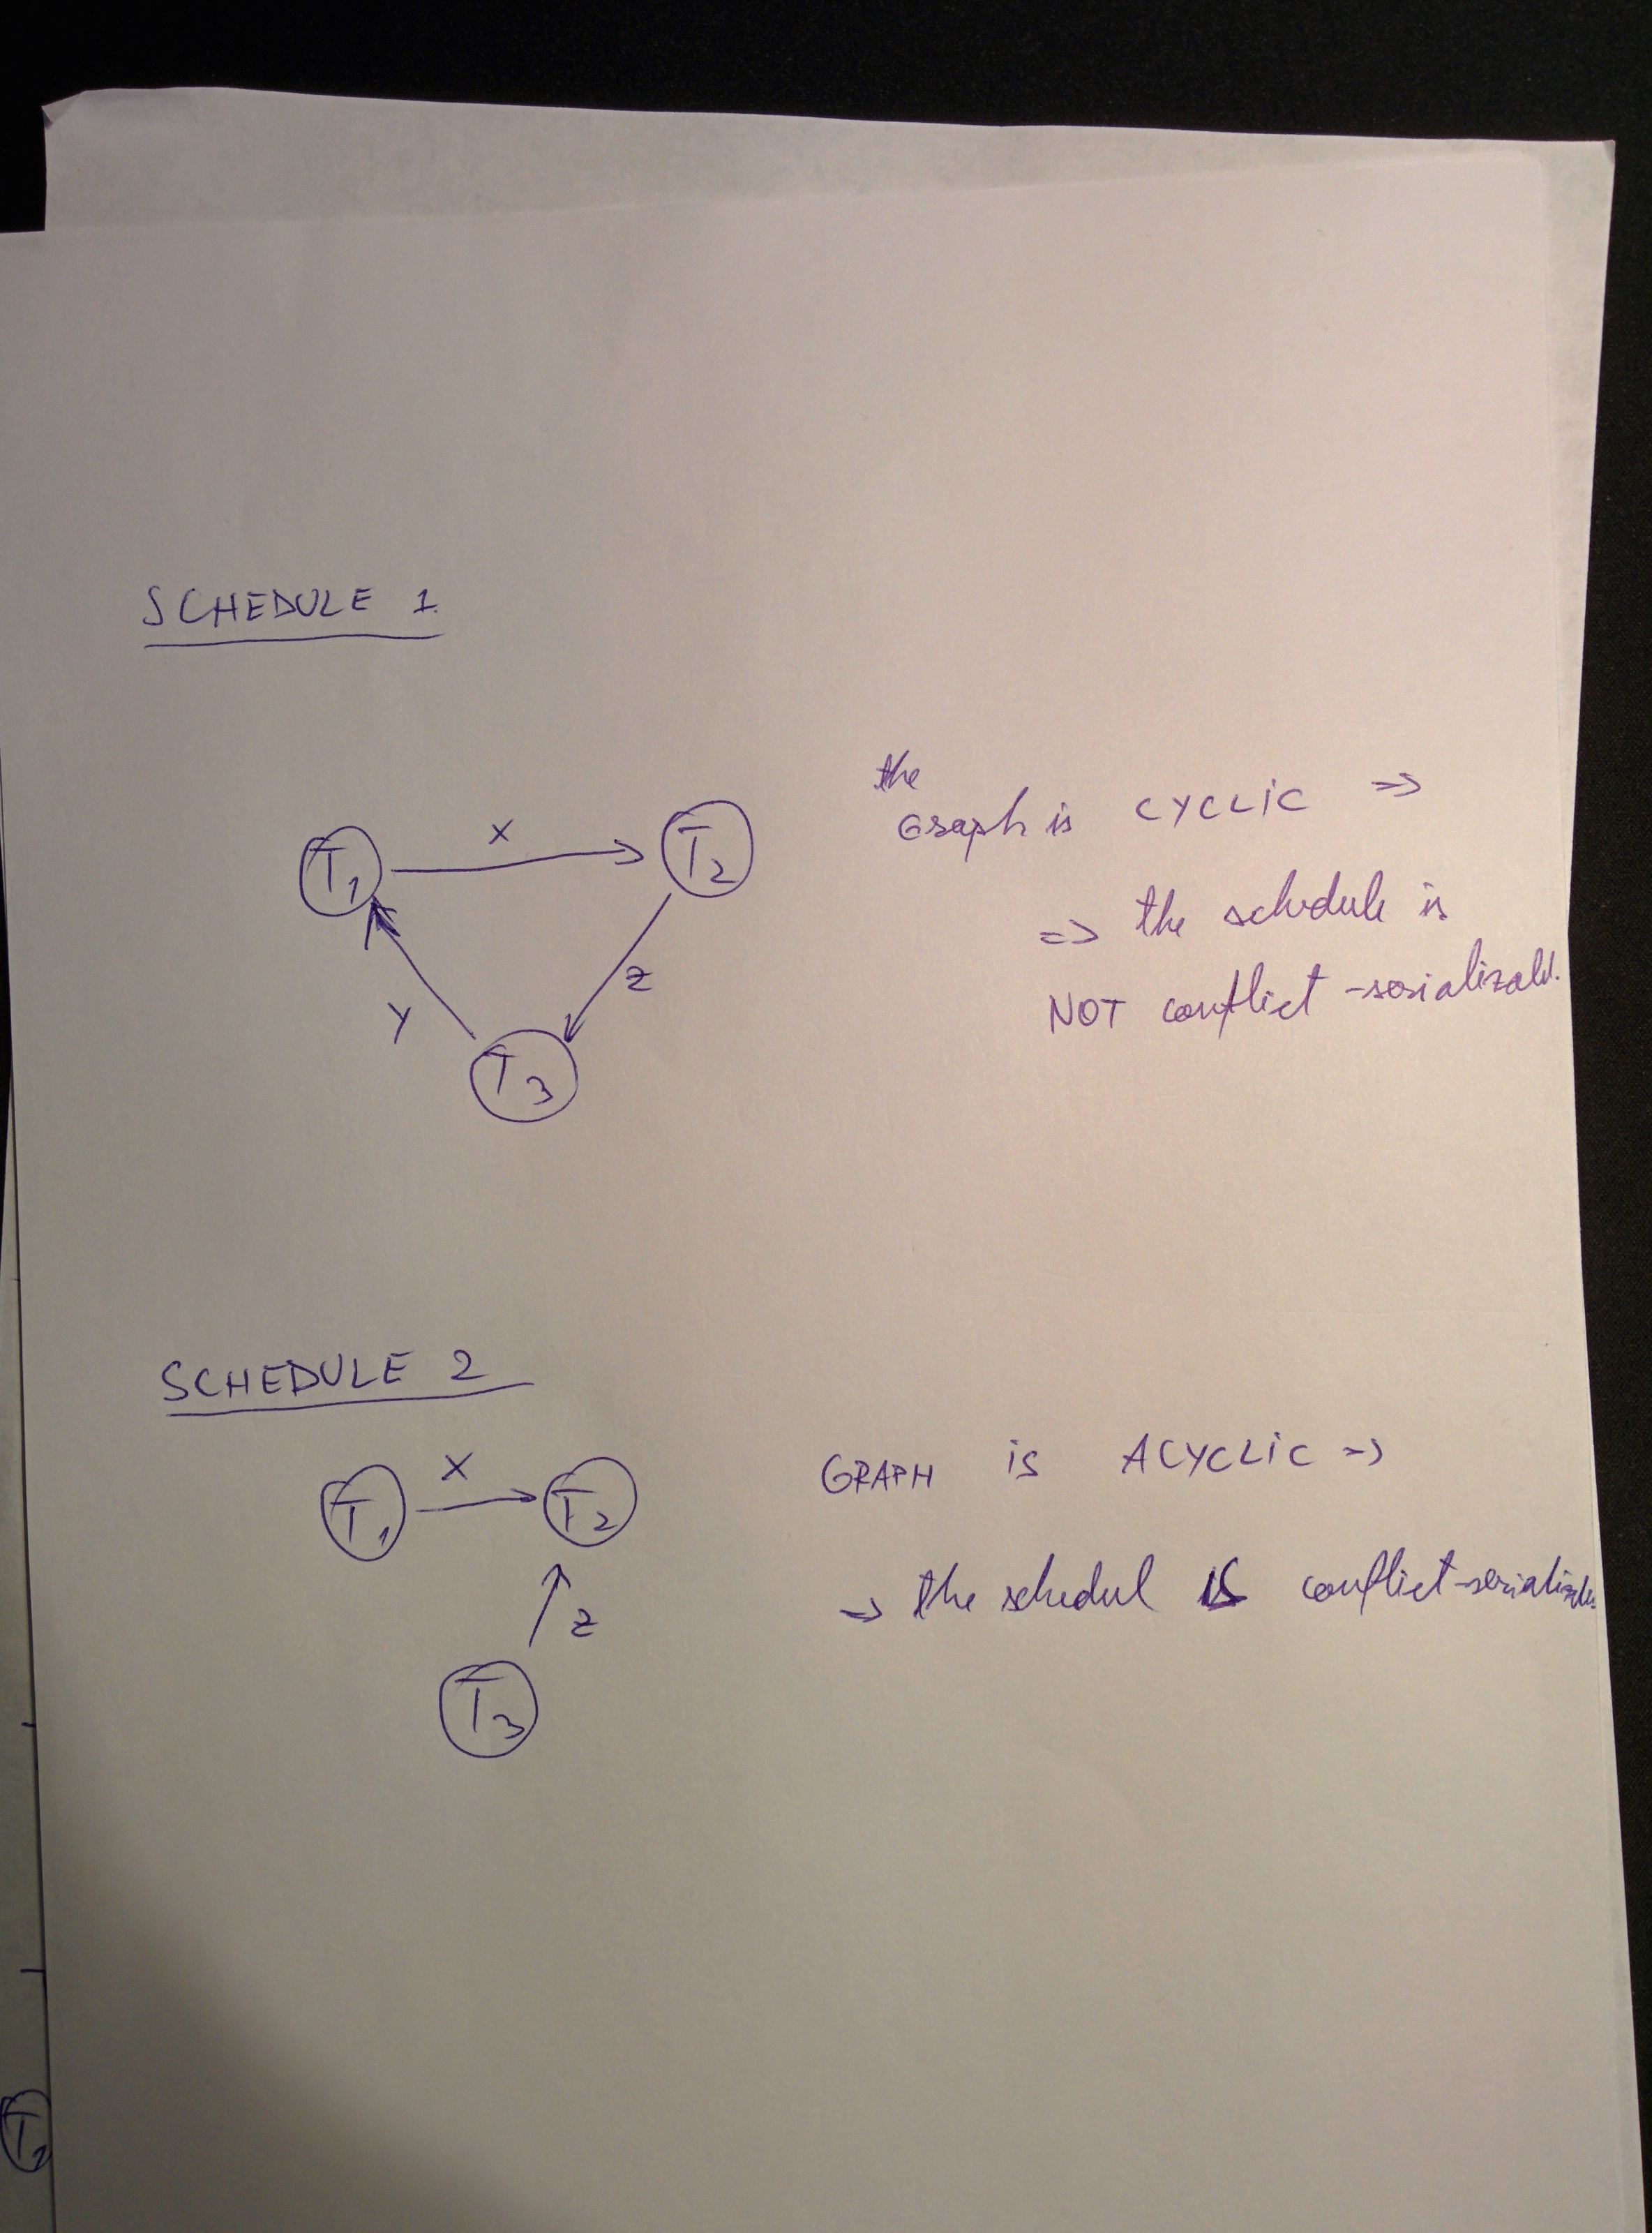 SCHEDULE 1.
X
T1
T2
Z
Y
T3
the
Graph is CYCLIC =>
=> the schedule is
NOT conflict-serializabl.
SCHEDULE 2
X
T1
T2
Z
T3
GRAPH is ACYCLIC =>
=> the schedul is conflict-serializable.
T1